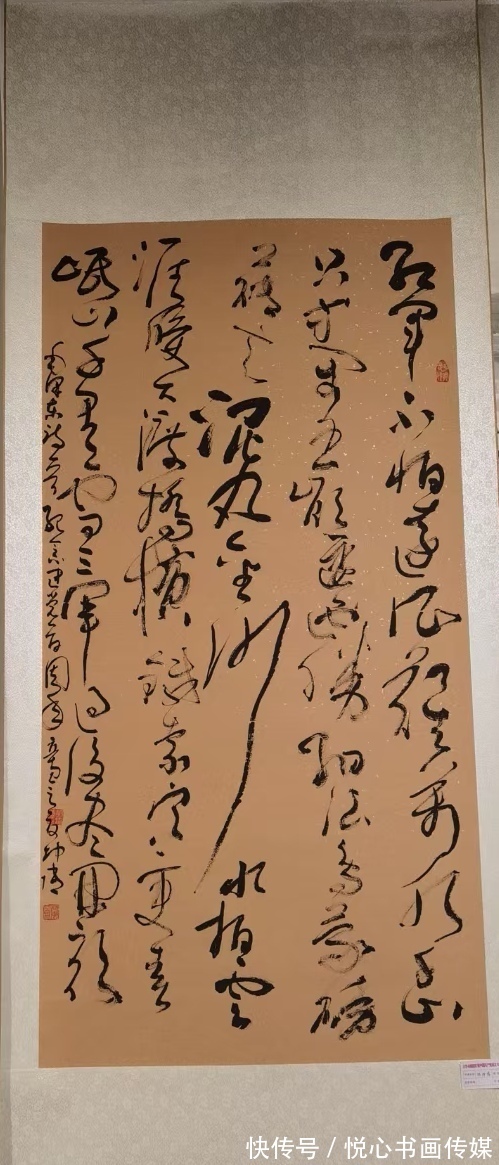 红军不怕远征难万水千山
只等闲五岭逶迤腾细浪乌蒙磅
礴走泥丸金沙水拍云
崖暖大渡桥横铁索寒更喜
岷山千里雪三军过后尽开颜
毛泽东诗一首纪念建党百周年
快传号 / 悦心书画传媒